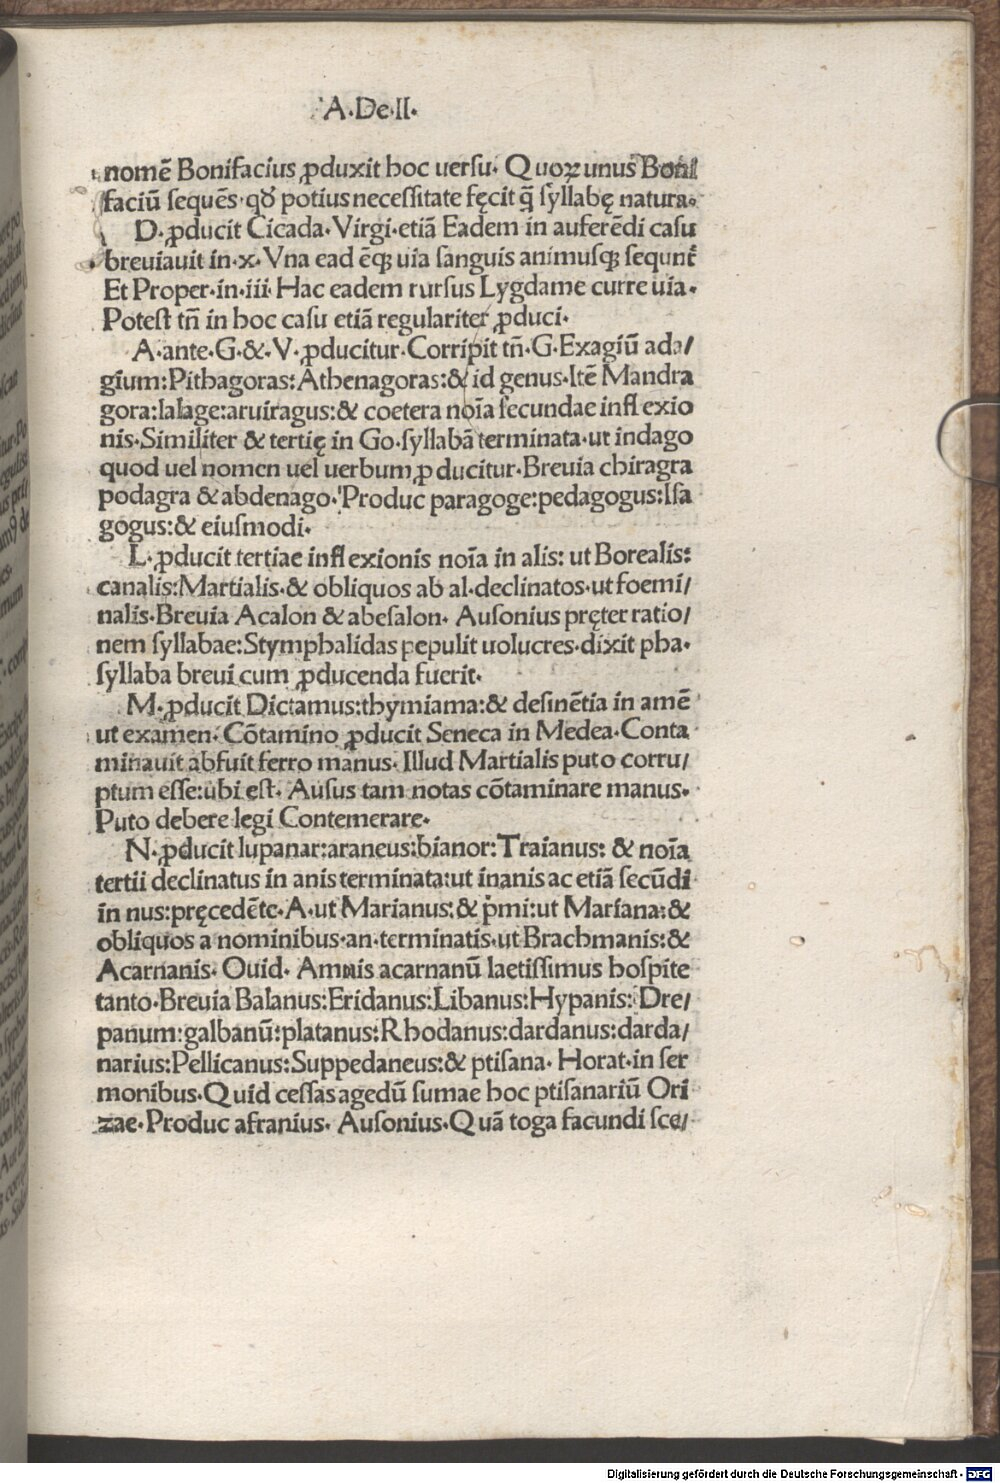 A·De·II·
nomē Bonifacius ꝓduxit hoc uersu· Quoꝝ unus Boni
faciū sequēs·qđ potius necessitate fęcit q̄ syllabę natura·
D·ꝓducit Cicada·Virgi·etiā Eadem in auferēdi casu
breuiauit in·x·Vna ead ēqꝫ uia sanguis animusqꝫ sequnt᷑
Et Proper·in·iii·Hac eadem rursus Lygdame curre uia·
Potest tn̄ in hoc casu etiā regulariter ꝓduci·
A·ante·G·&·V·ꝓducitur·Corripit tn̄·G·Exagiū ada/
gium:Pithagoras:Athenagoras:& id genus·Itē Mandra
gora:lalage:aruiragus:& coetera noīa secundae infl exio
nis·Similiter & tertię in Go·syllabā terminata·ut indago
quod uel nomen uel uerbum ꝓ ducitur·Breuia chiragra
podagra & abdenago·Produc paragoge:pedagogus:Isa
gogus:& eiusmodi·
L·ꝓducit tertiae infl exionis noīa in alis: ut Borealis:
canalis:Martialis·& obliquos ab al·declinatos·ut foemi/
nalis·Breuia Acalon & abesalon· Ausonius pręter ratio/
nem syllabae:Stymphalidas pepulit uolucres·dixit pha·
syllaba breui cum ꝓducenda fuerit·
M·ꝓducit Dictamus:thymiama:& desinētia in amē
ut examen·Cōtamino ꝓducit Seneca in Medea·Conta
minauit abfuit ferro manus·Illud Martialis puto corru/
ptum esse:ubi est· Ausus tam notas cōtaminare manus·
Puto debere legi Contemerare·
N·ꝓducit lupanar:araneus:bianor:Traianus: & noīa
tertii declinatus in anis terminata:ut inanis ac etiā secūdi
in nus:pręcedēte·A·ut Marianus:& p̄mi:ut Mariana:&
obliquos a nominibus·an·terminatis·ut Brachmanis:&
Acarnanis·Ouid· Amnis acarnanū laetissimus hospite
tanto·Breuia Balanus:Eridanus:Libanus:Hypanis:Dre/
panum:galbanū:platanus:Rhodanus:dardanus:darda/
narius:Pellicanus:Suppedaneus:& ptisana· Horat·in ser
monibus·Quid cessas agedū sumae hoc ptisanariū Ori
zae·Produc afranius· Ausonius·Quā toga facundi sce/
Digitalisierung gefördert durch die Deutsche Forschungsgemeinschaft - DFG